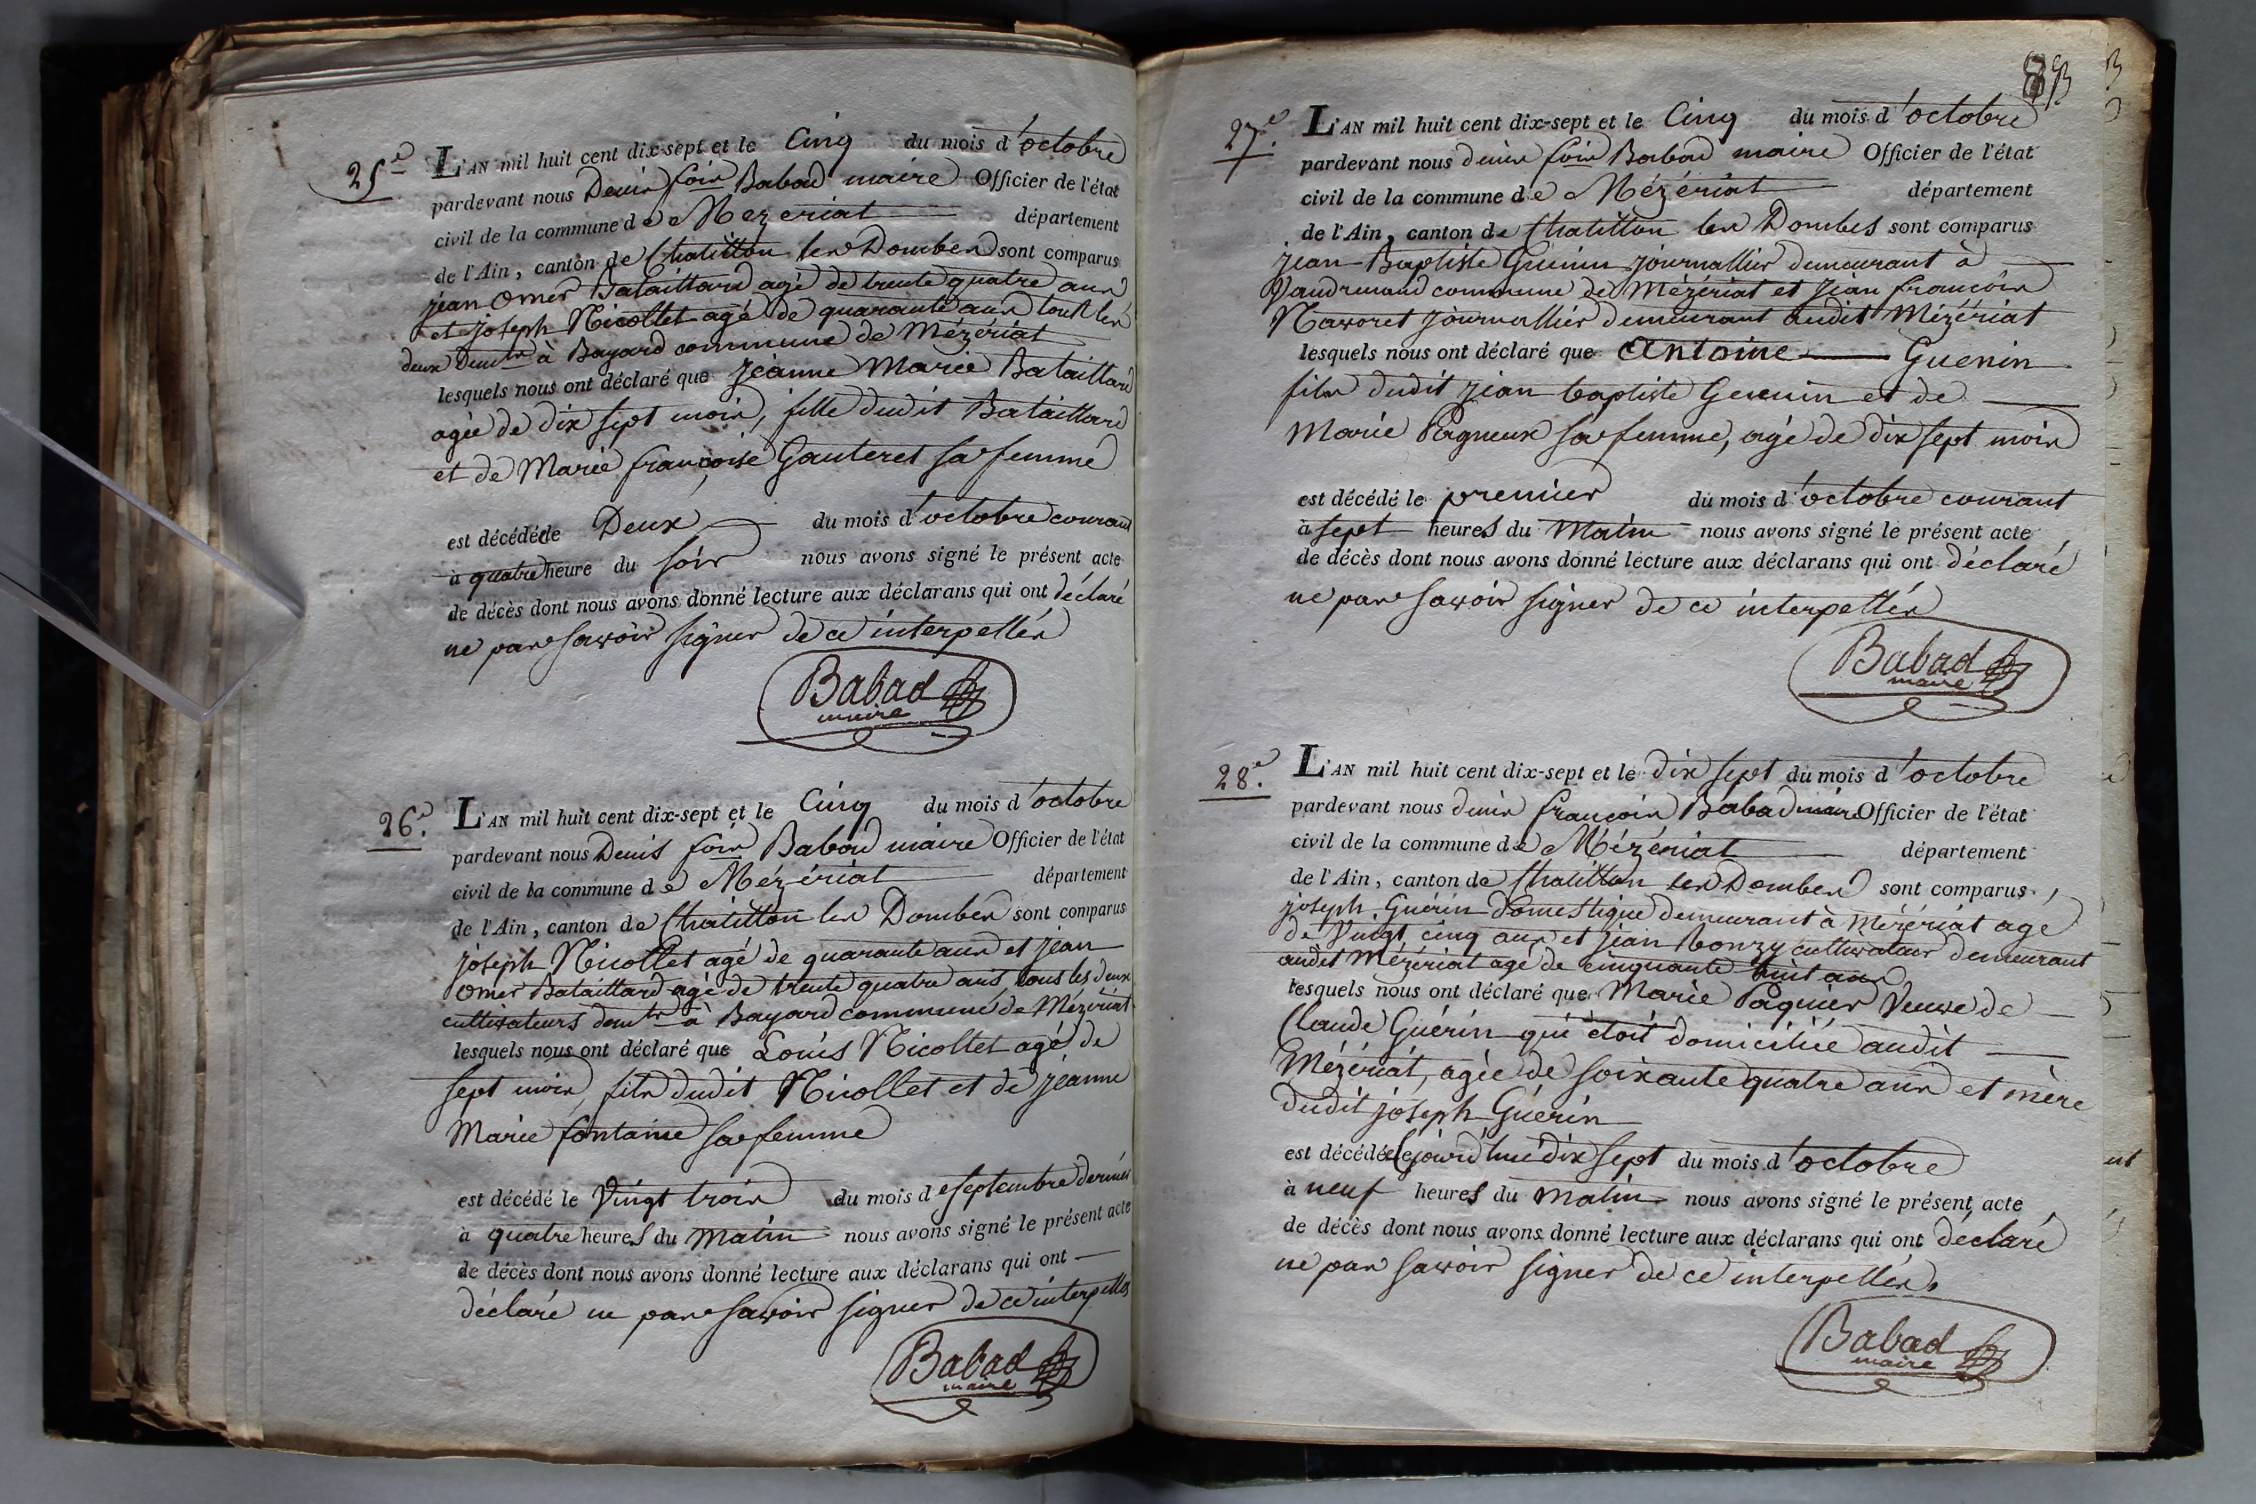 25e
L'AN mil huit cent dix-sept et le Cinq du mois d'octobre
pardevant nous Denis fois Babad maire Officier de l'état
civil de la commune de Mezeriat département
de l'Ain, canton de Chatillon les Dombes sont comparus
jean Omer Bataillard agé de trente quatre ans
et joseph Nicollet agé de quarante ans tous les
deux demts à Bayard commune de Mézériat
lesquels nous ont déclaré que jeanne Marie Bataillard
agée de dix sept mois, fille dudit Bataillard
et de Marie françoise Gauteret sa femme
est décédée le Deux du mois d'octobre courant
à quatre heure du soir nous avons signé le présent acte
de décès dont nous avons donné lecture aux déclarans qui ont déclaré
ne pas savoir signer de ce interpellés
Babad
maire
26e.
L'AN mil huit cent dix-sept et le Cinq du mois d'octobre
pardevant nous Denis fois Babad maire Officier de l'état
civil de la commune de Mézériat département
de l'Ain, canton de Chatillon les Dombes sont comparus
joseph Nicollet agé de quarante ans et jean
omer Bataillard agé de trente quatre ans, tous les deux
cultivateurs demts à Bayard commune de Mézériat
lesquels nous ont déclaré que Louis Nicollet agé de
sept mois, fils dudit Nicollet et de jeanne
Marie fontaine sa femme
est décédé le Vingt trois du mois de septembre dernier
à quatre heures du Matin nous avons signé le présent acte
de décès dont nous avons donné lecture aux déclarans qui ont
déclaré ne pas savoir signer de ce interpellés
Babad
maire
27e.
L'AN mil huit cent dix-sept et le Cinq du mois d'octobre
pardevant nous denis fois Babad maire Officier de l'état
civil de la commune de Mézériat département
de l'Ain, canton de Chatillon les Dombes sont comparus
jean Baptiste Guenin journallier demeurant à
Vaudrenaud commune de Mézériat et jean françois
Navoret journallier demeurant audit Mézériat
lesquels nous ont déclaré que Antoine Guenin
fils dudit jean baptiste Guenin et de
Marie Pagneux sa femme, agé de dix sept mois
est décédé le premier du mois d'octobre courant
à sept heures du Matin nous avons signé le présent acte
de décès dont nous avons donné lecture aux déclarans qui ont déclaré
ne pas savoir signer de ce interpellés
Babad
maire
28e.
L'AN mil huit cent dix-sept et le dix sept du mois d'octobre
pardevant nous denis françois Babad maire Officier de l'état
civil de la commune de Mézériat département
de l'Ain, canton de Chatillon les Dombes sont comparus
joseph Guérin domestique demeurant à Mézériat agé
de Vingt cinq ans et jean Ronzy cultivateur demeurant
audit Mézériat agé de cinquante huit ans
lesquels nous ont déclaré que Marie Paguier Veuve de
Claude Guérin qui étoit domiciliée audit
Mézériat, agée de soixante quatre ans et mère
dudit joseph Guérin
est décédée cejourd'hui dix sept du mois d'octobre
à neuf heures du matin nous avons signé le présent acte
de décès dont nous avons donné lecture aux déclarans qui ont déclaré
ne pas savoir signer de ce interpellés.
Babad
maire